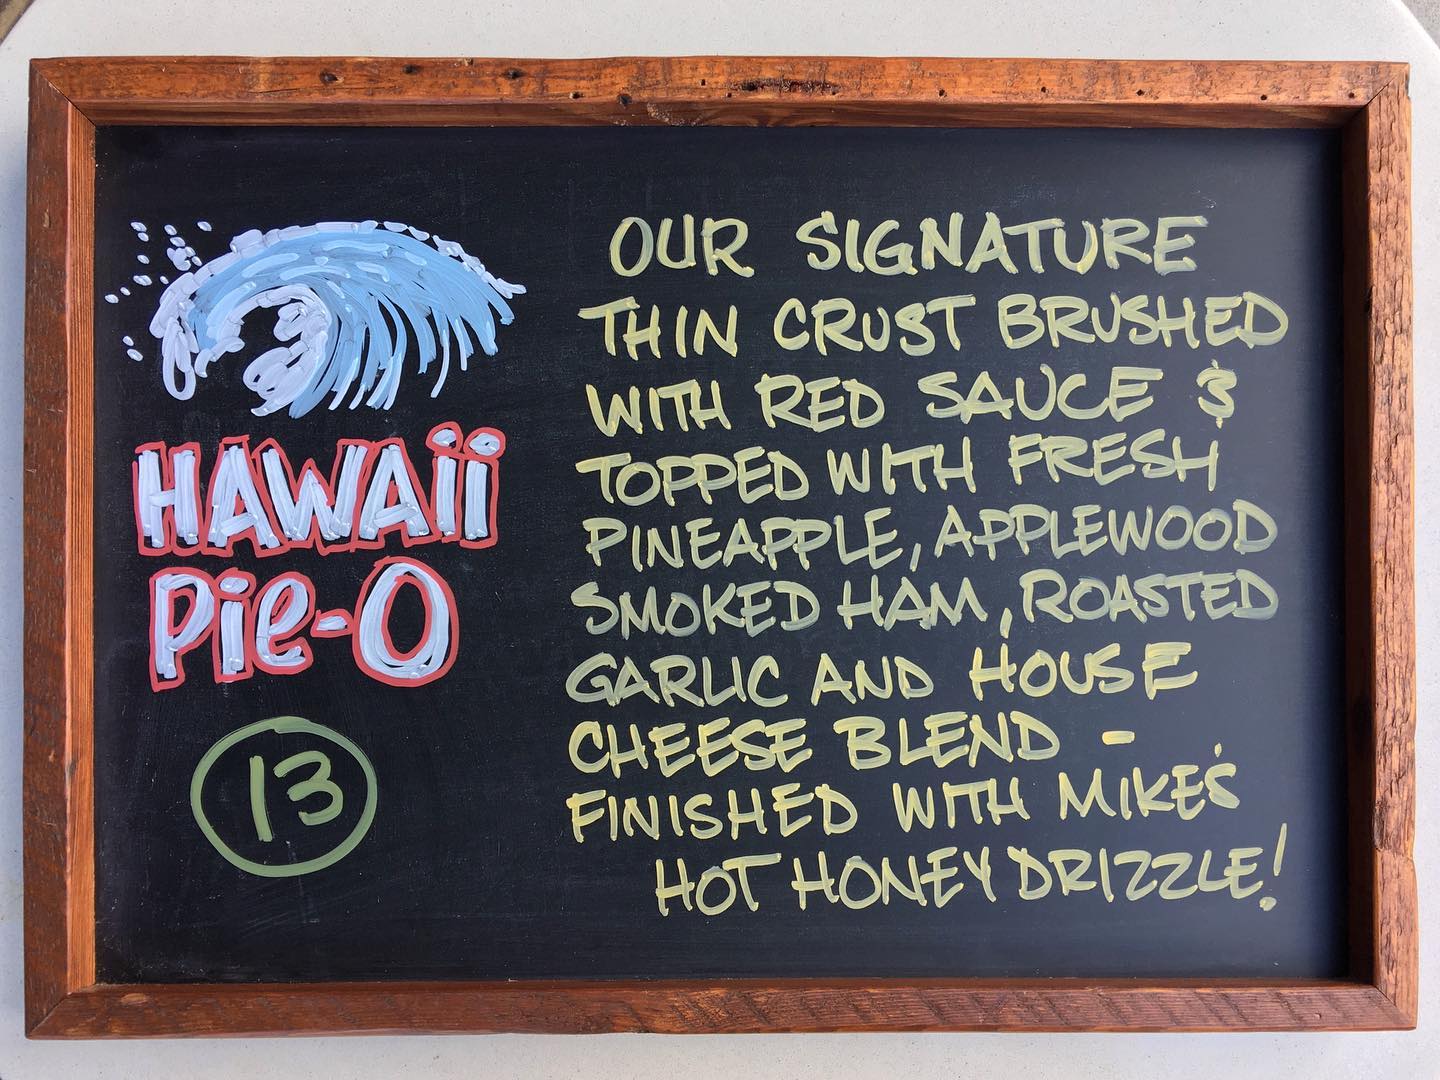 HAWAii
Pie-O
13
OUR SIGNATURE
THIN CRUST BRUSHED
WITH RED SAUCE &
TOPPED WITH FRESH
PINEAPPLE, APPLEWOOD
SMOKED HAM, ROASTED
GARLIC AND HOUSE
CHEESE BLEND -
FINISHED WITH MIKE'S
HOT HONEY DRIZZLE!